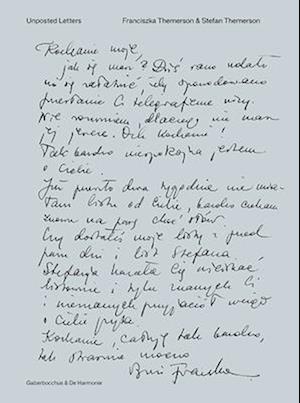 Unposted Letters
Franciszka Themerson & Stefan Themerson
Kochanie moje,
jak się masz? Dziś rano udało
mi się załatwić, żeby spowodowano
przesłanie Ci telegraficzne wizy.
Nie rozumiem, dlaczego nie masz
jej jeszcze. Och kochanie!
Tak bardzo niespokojna jestem
o Ciebie.
Już prawie dwa tygodnie nie
listu od Ciebie, bardzo czekam
znowu na parę choć słów.
Czy dostałeś moje listy sprzed
paru dni i list Stefana,
Stefania kazała Cię uściskać,
i tylu znanych Ci
i nieznanych przyjaciół wciąż
o Ciebie pyta.
Kochanie, całuję tak bardzo,
tak strasznie mocno
Franka
Gaberbocchus & De Harmonie